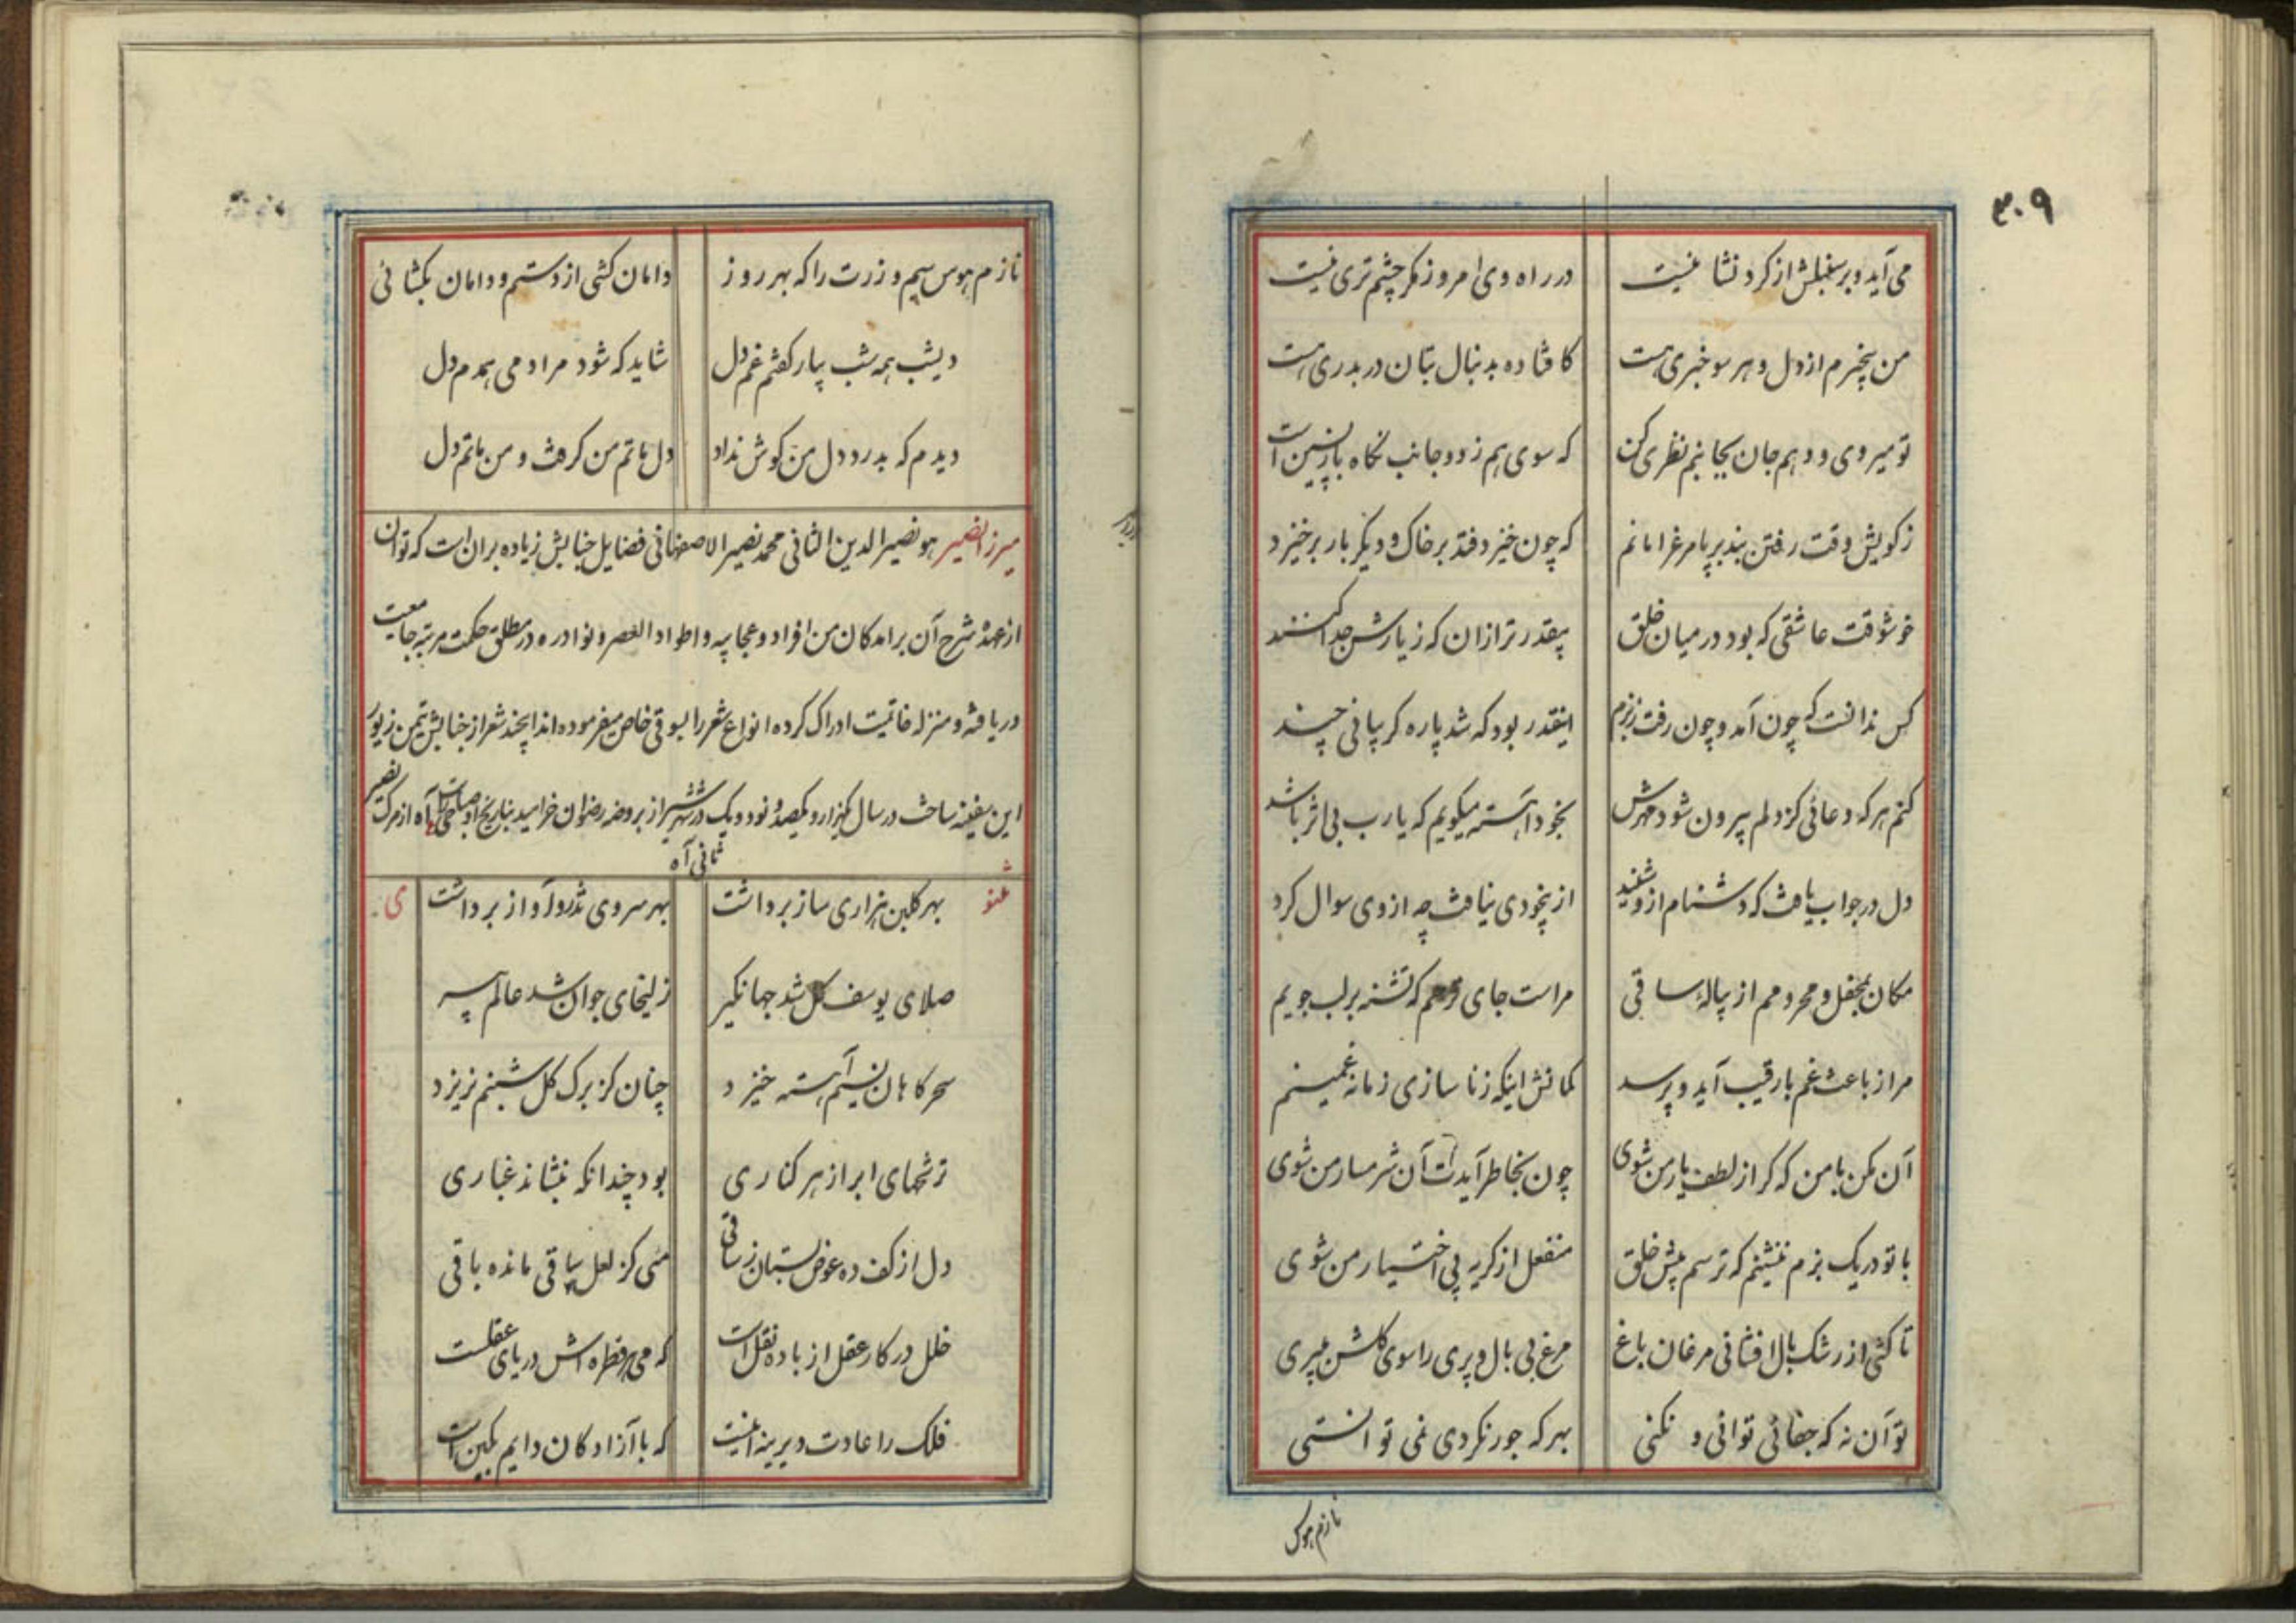 ۳۰۹
می آید و بر سنبلش از کرد نشانیست در راه وی امروز مکر چشم تری نیست
من بیخبرم از دل و هر سو خبری هست کافتاده بدنبال بتان در بدری هست
تو میروی و دهم جان بجانبم نظری کن که سوی هم ز دو جانب نکاه بازپسین است
ز کویش وقت رفتن بند بر پا مرغ را مانم که چون خیزد فتد بر خاک و دیکر بار برخیزد
خوشوقت عاشقی که بود در میان خلق بیقدرتر ازان که ز یارش جدا کنند
کس ندانست که چون آمد و چون رفت ز بزم اینقدر بود که شد پاره کریبانی چند
کنم هر که دعائی کز دلم بیرون شود مهرش بخود آهسته میکویم که یا رب بی اثر باشد
دل در جواب یافت که دشنام ازو شنید از بیخودی نیافت چه از وی سوال کرد
مکان بمحفل و محرومم از پیالهٔ ساقی مراست جای ترحم که تشنه بر لب جویم
مرا ز باعث غم با رقیب آید و پرسد کمانش اینکه ز ناسازی زمانه غمینم
آن مکن با من که کر از لطف یار من شوی چون بخاطر آیدت آن شرمسار من شوی
با تو در یک بزم ننشینم که ترسم پیش خلق منفعل از کریه بی اختیار من شوی
تا کشی از رشک بال افشانی مرغان باغ مرغ بی بال و پری را سوی کلشن میبری
تو آن نه که جفائی توانی و نکنی بهر که جور نکردی نمی توانستی
نازم هوس
نازم هوس سیم و زرت را که بهر روز دامان کشی از دستم و دامان بکشائی
دیشب همه شب بیار کفتم غم دل شاید که شود مرا دمی همدم دل
دیدم که بدرد دل من کوش نداد دل ماتم من کرفت و من ماتم دل
میرزا نصیر هو نصیر الدین الثانی محمد نصیر الاصفهانی فضایل جنابش زیاده بران است که توان
از عهدهٔ شرح آن برامد کان من افراد و عجایبه و اطواد العصر و نوادره در مطلق حکمت مرتبه جامعیت
دریافته و منزله خاتمیت ادراک کرده انواع شعر را بسوقی خاص میفرموده اند اینچند شعر از جنابش تیمن زیور
این سفینه ساخت در سال یکهزار و یکصد و نود و یک در شهر شیراز بروضه رضوان خرامید بتاریخ او صباحی راست آه از مرک نصیر
ثانی آه
مثنوی
بهر کلبن هزاری ساز برداشت بهر سروی تذرو آواز برداشت
صلای یوسف کل شد جهانکیر زلیخای جوان شد عالم پیر
سحرکاهان نسیم آهسته خیزد چنان کز برک کل شبنم نریزد
ترشحهای ابر از هر کناری بود چندانکه بنشاند غباری
دل از کف ده عوض بستان ز ساقی مئی کز لعل ساقی مانده باقی
خلل در کار عقل از باده نقل است که می هر قطره اش دریای عقلست
فلک را عادت دیرینه اینست که با آزادکان دایم بکین است